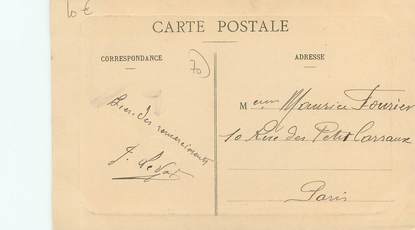 10 €
CARTE POSTALE
CORRESPONDANCE
ADRESSE
70
Bien des remerciements
M Maurice Fourier
10 Rue des Petits Carreaux
Paris